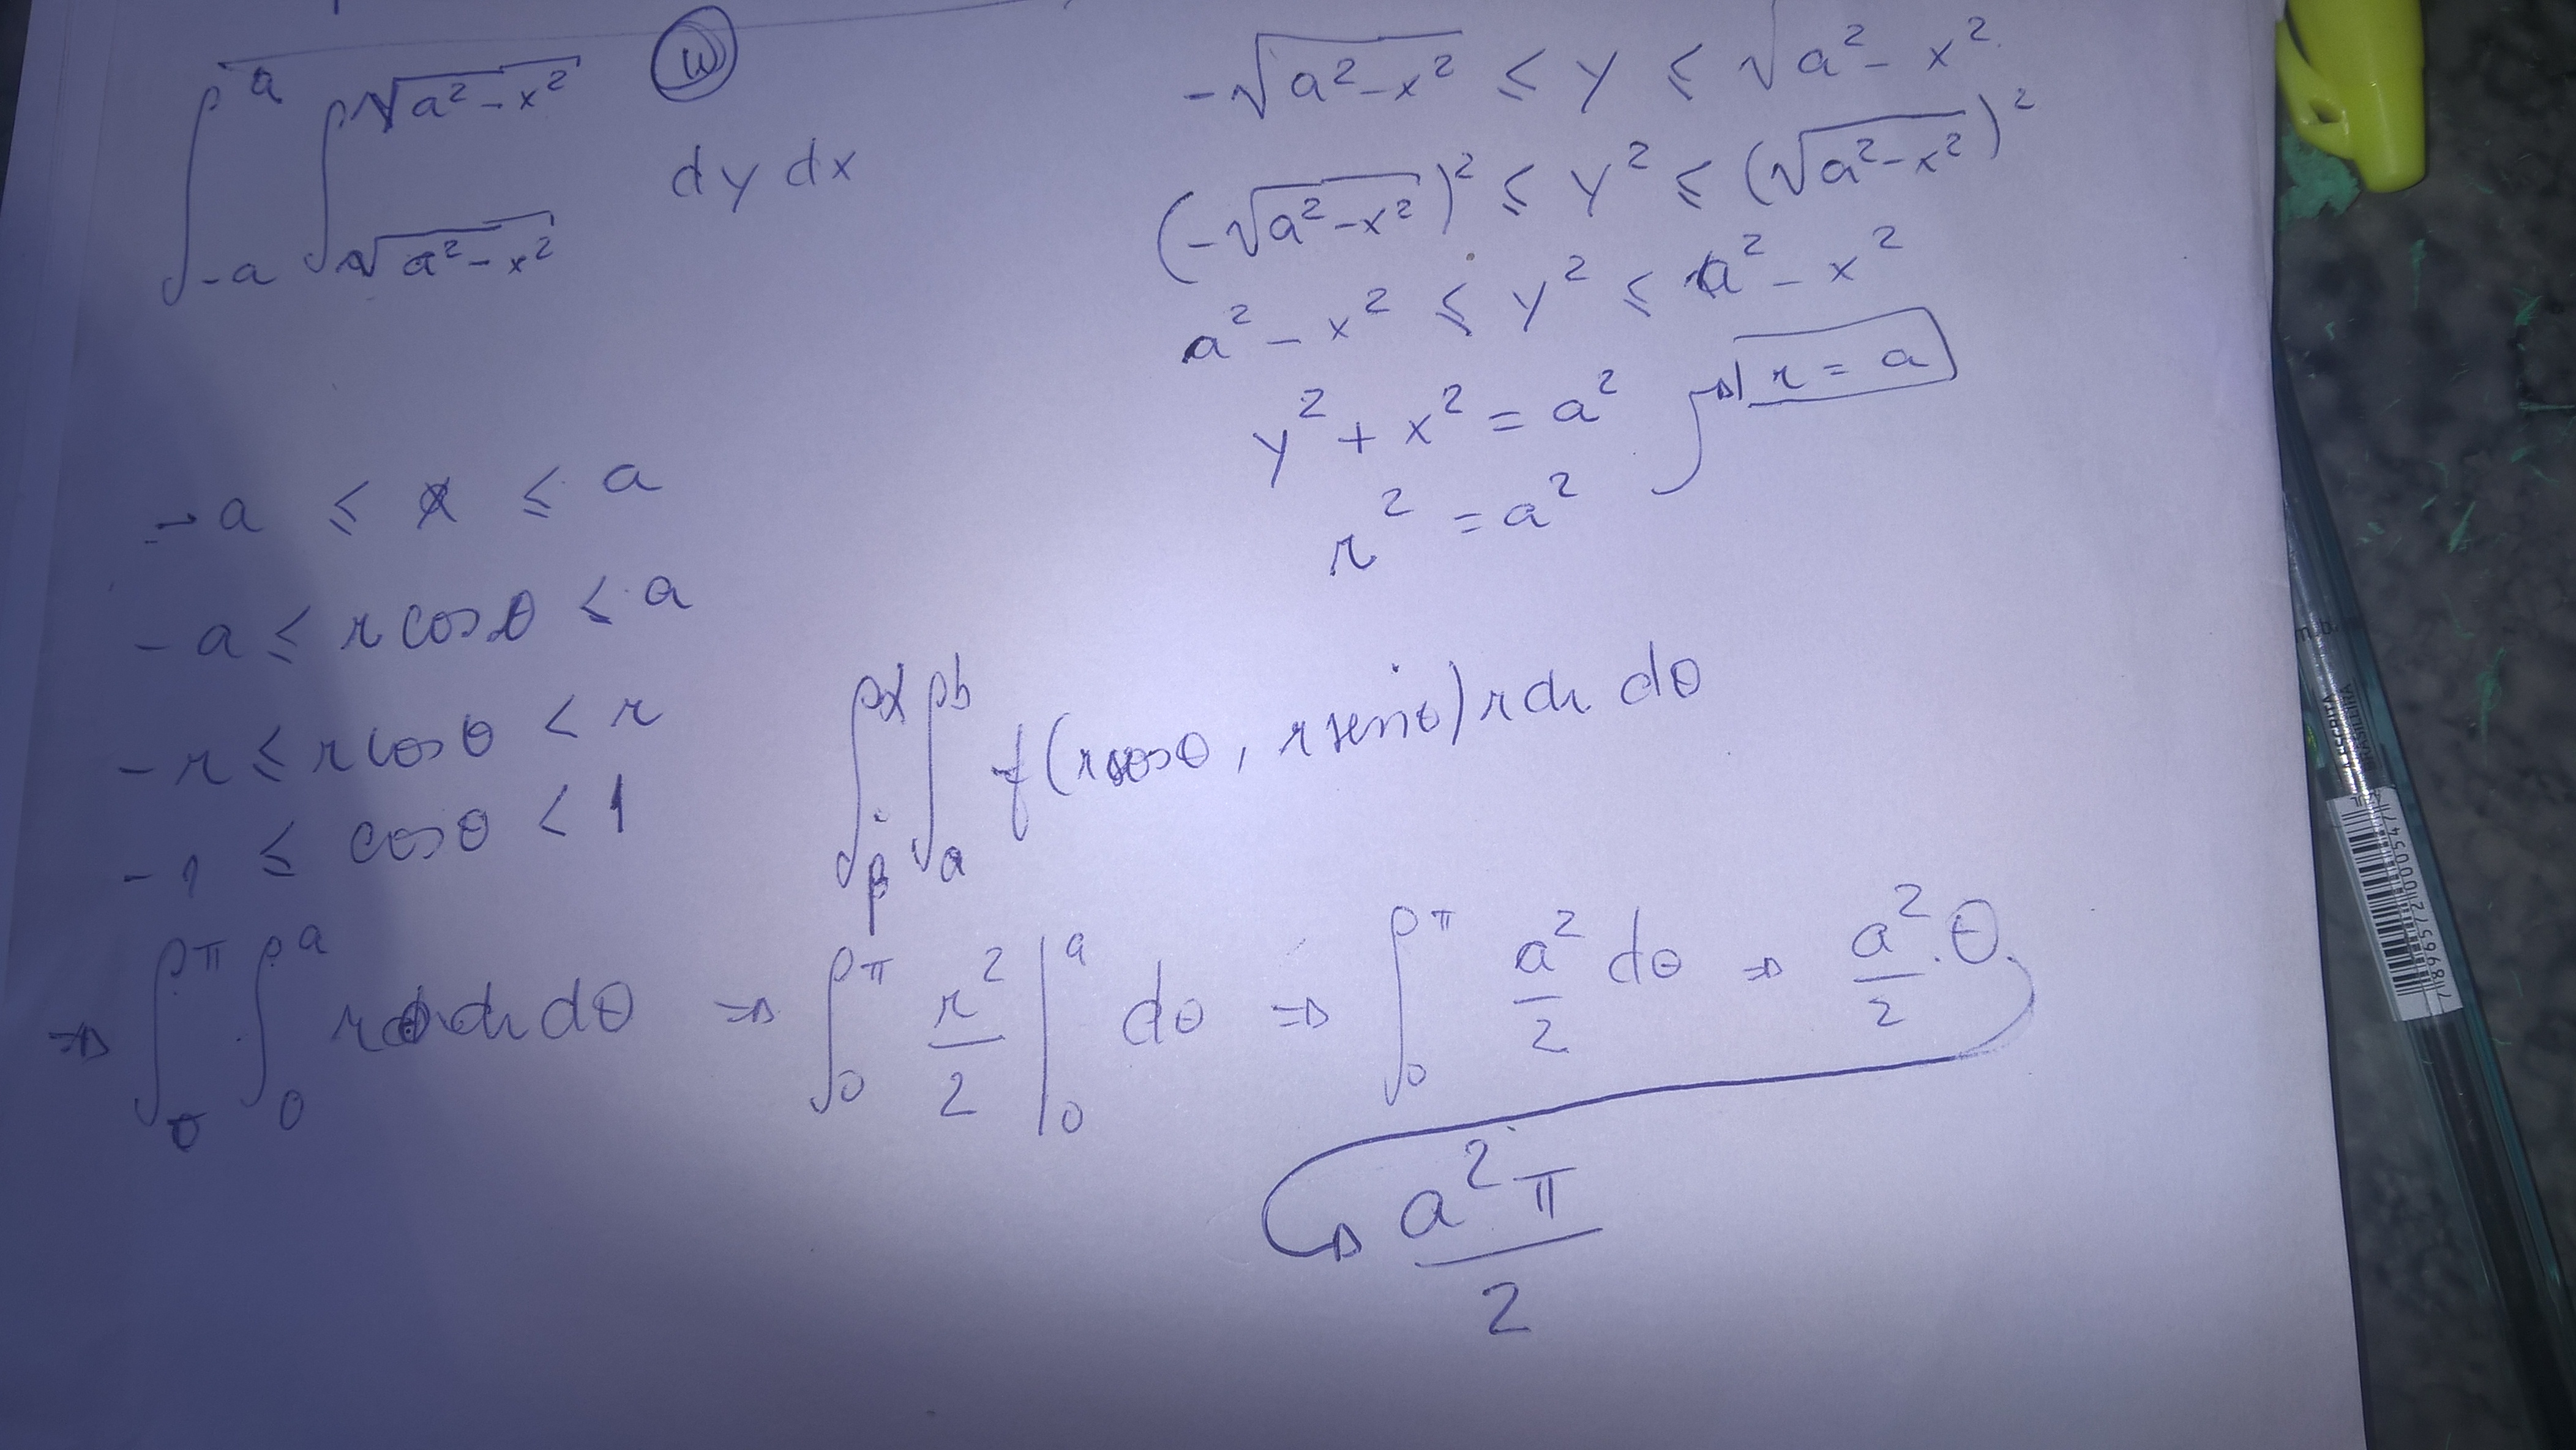 ∫_{-a}^{a} ∫_{√(a²-x²)}^{√(a²-x²)} dy dx
-√(a²-x²) ≤ y ≤ √(a²-x²)
(-√(a²-x²))² ≤ y² ≤ (√(a²-x²))²
a²-x² ≤ y² ≤ a²-x²
y²+x² = a²
r² = a²
r = a
-a ≤ x ≤ a
-a ≤ r cosθ ≤ a
-r ≤ r cosθ < r
-1 ≤ cosθ < 1
∫_{β}^{α} ∫_{a}^{b} f(r cosθ, r senθ) r dr dθ
⇒ ∫_{0}^{π} ∫_{0}^{a} r dr dθ ⇒ ∫_{0}^{π} r²/2 |_{0}^{a} dθ ⇒ ∫_{0}^{π} a²/2 dθ ⇒ a²/2 · θ
a²π/2